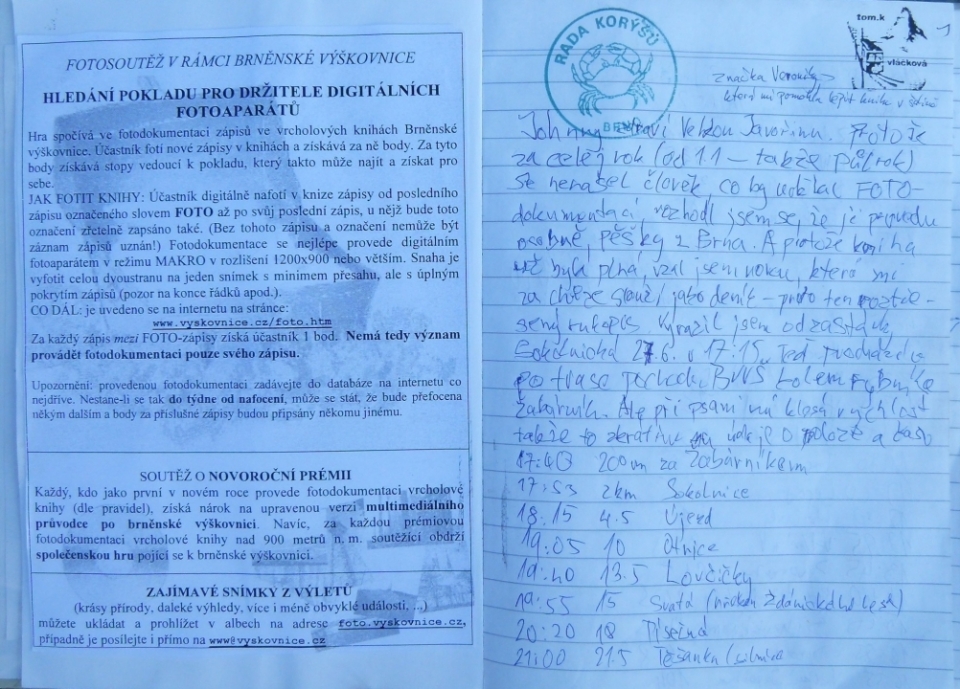 FOTOSOUTĚŽ V RÁMCI BRNĚNSKÉ VÝŠKOVNICE
HLEDÁNÍ POKLADU PRO DRŽITELE DIGITÁLNÍCH
FOTOAPARÁTŮ
Hra spočívá ve fotodokumentaci zápisů ve vrcholových knihách Brněnské
výškovnice. Účastník fotí nové zápisy v knihách a získává za ně body. Za tyto
body získává stopy vedoucí k pokladu, který takto může najít a získat pro
sebe.
JAK FOTIT KNIHU: Účastník digitálně nafotí v knize zápisy od posledního
zápisu označeného slovem FOTO až po svůj poslední zápis, u nějž bude toto
označení zřetelně zapsáno také. (Bez tohoto zápisu a označení nemůže být
záznam zápisů uznán!) Fotodokumentace se nejlépe provede digitálním
fotoaparátem v režimu MAKRO v rozlišení 1200x900 nebo větším. Snaha je
vyfotit celou dvoustranu na jeden snímek s minimem přesahu, ale s úplným
pokrytím zápisů (pozor na konce řádků apod.).
CO DÁL: je uvedeno se na internetu na stránce:
www.vyskovnice.cz/foto.htm
Za každý zápis mezi FOTO-zápisy získá účastník 1 bod. Nemá tedy význam
provádět fotodokumentaci pouze svého zápisu.
Upozornění: provedenou fotodokumentaci zadávejte do databáze na internetu co
nejdříve. Nestane-li se tak do týdne od nafocení, může se stát, že bude přefocena
někým dalším a body za příslušné zápisy budou připsány někomu jinému.
SOUTĚŽ O NOVOROČNÍ PRÉMII
Každý, kdo jako první v novém roce provede fotodokumentaci vrcholové
knihy (dle pravidel), získá nárok na upravenou verzi multimediálního
průvodce po brněnské výškovnici. Navíc, za každou prémiovou
fotodokumentaci vrcholové knihy nad 900 metrů n. m. soutěžící obdrží
společenskou hru pojící se k brněnské výškovnici.
ZAJÍMAVÉ SNÍMKY Z VÝLETŮ
(krásy přírody, daleké výhledy, více i méně obvyklé události, ...)
můžete ukládat a prohlížet v albech na adrese foto.vyskovnice.cz,
případně je posílejte i přímo na www@vyskovnice.cz
RADA KORÝŠŮ
tom.k
vláčková
1
značka Veroniky
která mi pomohla
Johnny zdraví Velkou Javořinu. Protože
za celej rok (od 1.1 – takže půl rok)
se nenašel člověk, co by udělal FOTO-
dokumentaci, rozhodl jsem se, že ji provedu
osobně, pěšky z Brna. A protože kniha
už byla plná, vzal jsem novou, která mi
za chůze slouží jako deník – proto ten roztře-
sený rukopis. Vyrazil jsem od zastávky
Sokolnická 27.6. v 17:15. Teď procházím
po trase pochodu kolem rybníka
Žabárník. Ale při psaní mi klesá rychlost
takže to zkrátím na údaje o poloze a času
17:40 200m za Žabárníkem
17:53 2km Sokolnice
18:15 4.5 Újezd
19:05 10 Otnice
19:40 13.5 Lovčičky
19:55 15 Svatá (Ždánického lesa)
20:20 18
21:00 21.5